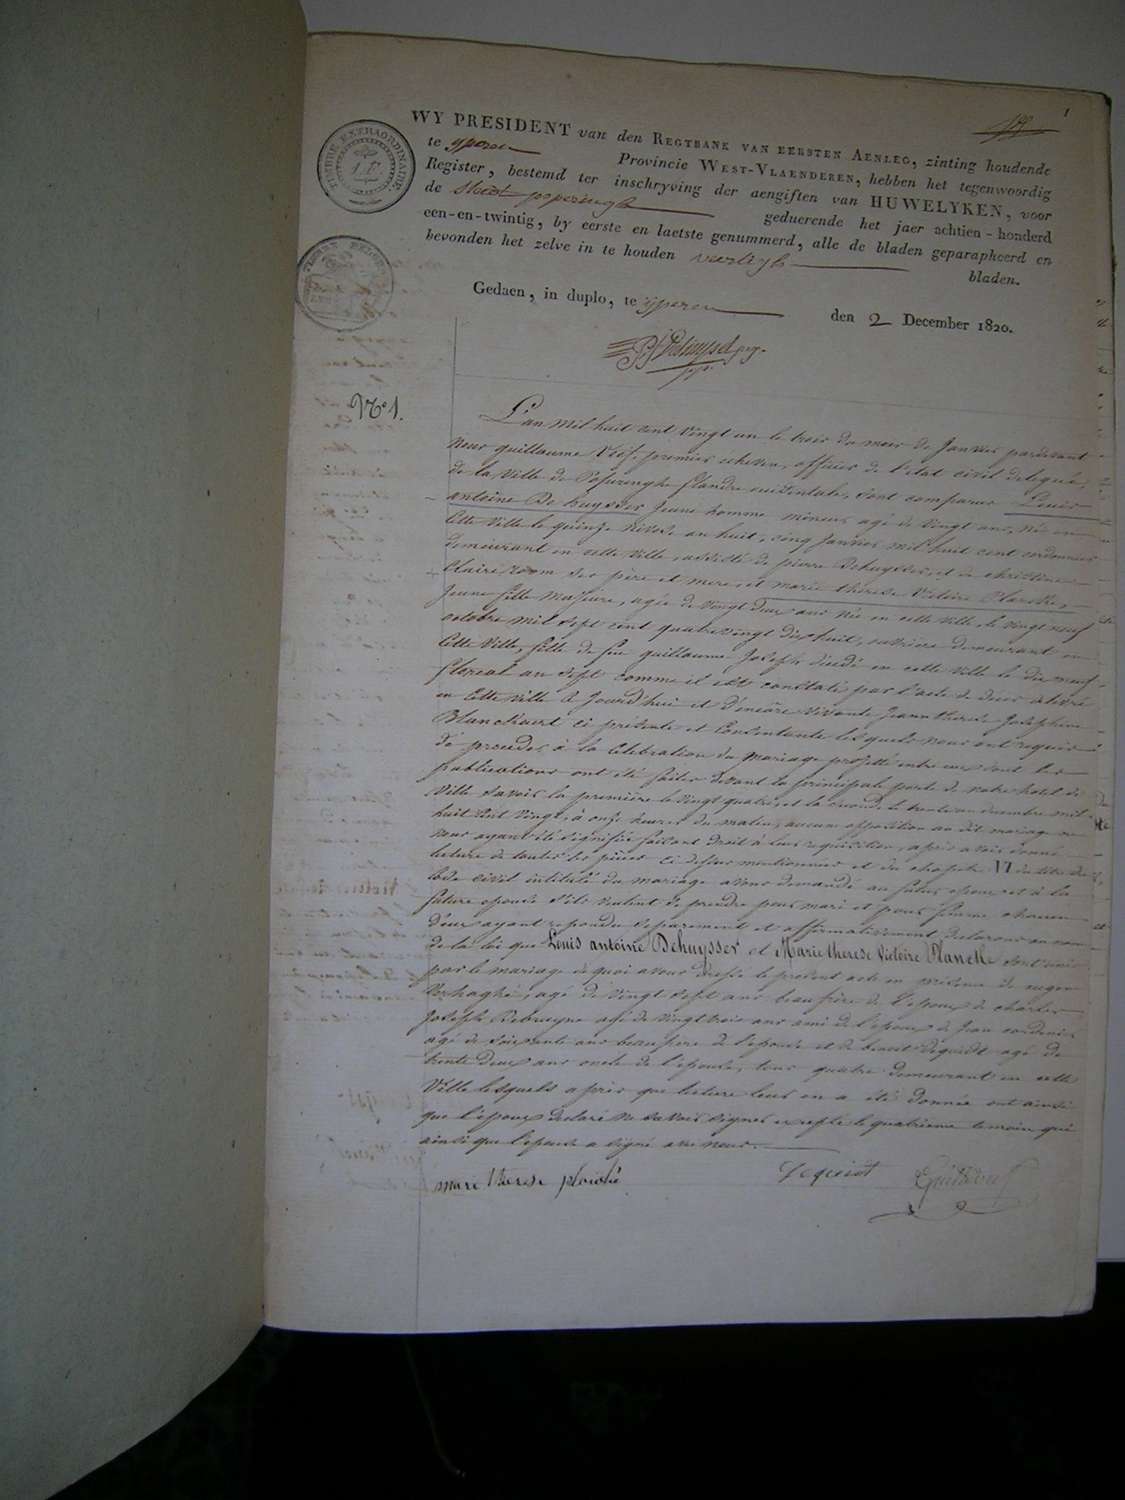 1
TIMBRE EXTRAORDINAIRE.
WY PRESIDENT van den REGTBANK VAN EERSTEN AENLEG, zinting houdende
te yperen Provincie WEST-VLAENDEREN, hebben het tegenwoordig
Register, bestemd ter inschryving der aengiften van HUWELYKEN, voor
de Stadt poperinghe geduerende het jaer achtien-honderd
een-en-twintig, by eerste en laetste genummerd, alle de bladen geparapheerd en
bevonden het zelve in te houden veertigh bladen.
Gedaen, in duplo, te yperen den 2 December 1820.
No. 1.
L'an mil huit cent vingt un le trois du mois de Janvier pardevant
nous guillaume premier echevin, officier de l'etat civil delegué,
de la ville de Poperinghe flandre occidentale, sont comparus Louis
antoine Dehuysser jeune homme mineur, agé de vingt ans, né en
cette ville le quinze Nivose an huit, cinq Janvier mil huit cent cordonnier
demeurant en cette ville, assisté de pierre Dehuysser, et de christine
Claire room ses père et mere, et marie therese Victoire Planckke,
jeune fille majeure, agée de vingt deux ans née en cette ville le vingt neuf
octobre mil sept cent quatre vingt dix huit, ouvriere demeurant en
cette Ville, fille de feu guillaume Joseph décédé en cette ville le dix neuf
floreal an sept comme il est constaté par l'acte de deces délivré
en cette ville d'aujourd'hui et d'encore vivante Jeanne therese Josephine
Blanckaert ci présente et consentante lesquels nous ont requis
de proceder à la celebration du mariage projetté entre eux dont les
publications ont été faites devant la principale porte de notre hotel de
ville savoir la première le vingt quatre et la seconde le trente un decembre mil
huit cent vingt, à onze heures du matin, aucune opposition au dit mariage ne
nous ayant été signifiée faisant droit à leur requisition, après avoir donné
lecture de toutes les pièces ci dessus mentionnées et du chapitre VI du titre du
code civil intitulé du mariage avons demandé au futur epoux et à la
future epouse s'ils veulent se prendre pour mari et pour femme chacun
d'eux ayant repondu separement et affirmativement, declarons au nom
de la loi que Louis antoine Dehuysser et Marie therese Victoire Planckke sont unis
par le mariage de quoi avons dressé le present acte en présence de
Verhaghe, agé de vingt sept ans beau frère de l'epoux de charles
Joseph Debruyne agé de vingt trois ans ami de l'epoux de Jean
agé de soixante ans beau pere de l'epouse et de benoit Dequidt agé de
trente deux ans oncle de l'epouse, tous quatre demeurant en cette
Ville lesquels après que lecture leur en a été donnée ont ainsi
que l'epoux declaré ne savoir signer excepté le quatrieme temoin qui
ainsi que l'epouse a signé avec nous.
mare therese
Dequidt